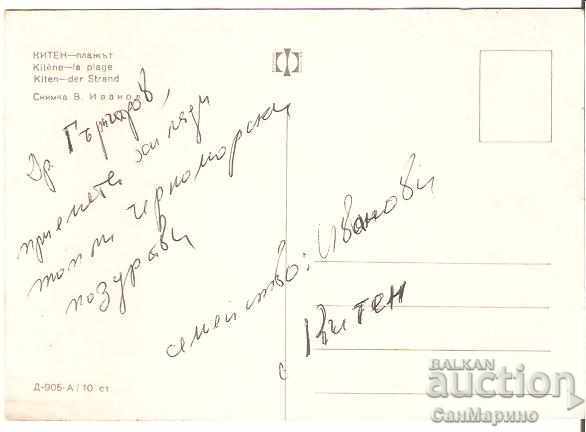 КИТЕН—плажът
Kiténe—la plage
Kiten—der Strand
Снимка В. Иванов
Др. Гърнчаров,
приемете хиляди
топли черноморски
поздрави
семейство: Иванови
с Китен
Д-905-А / 10 ст.
BALKAN
auction
СанМарино